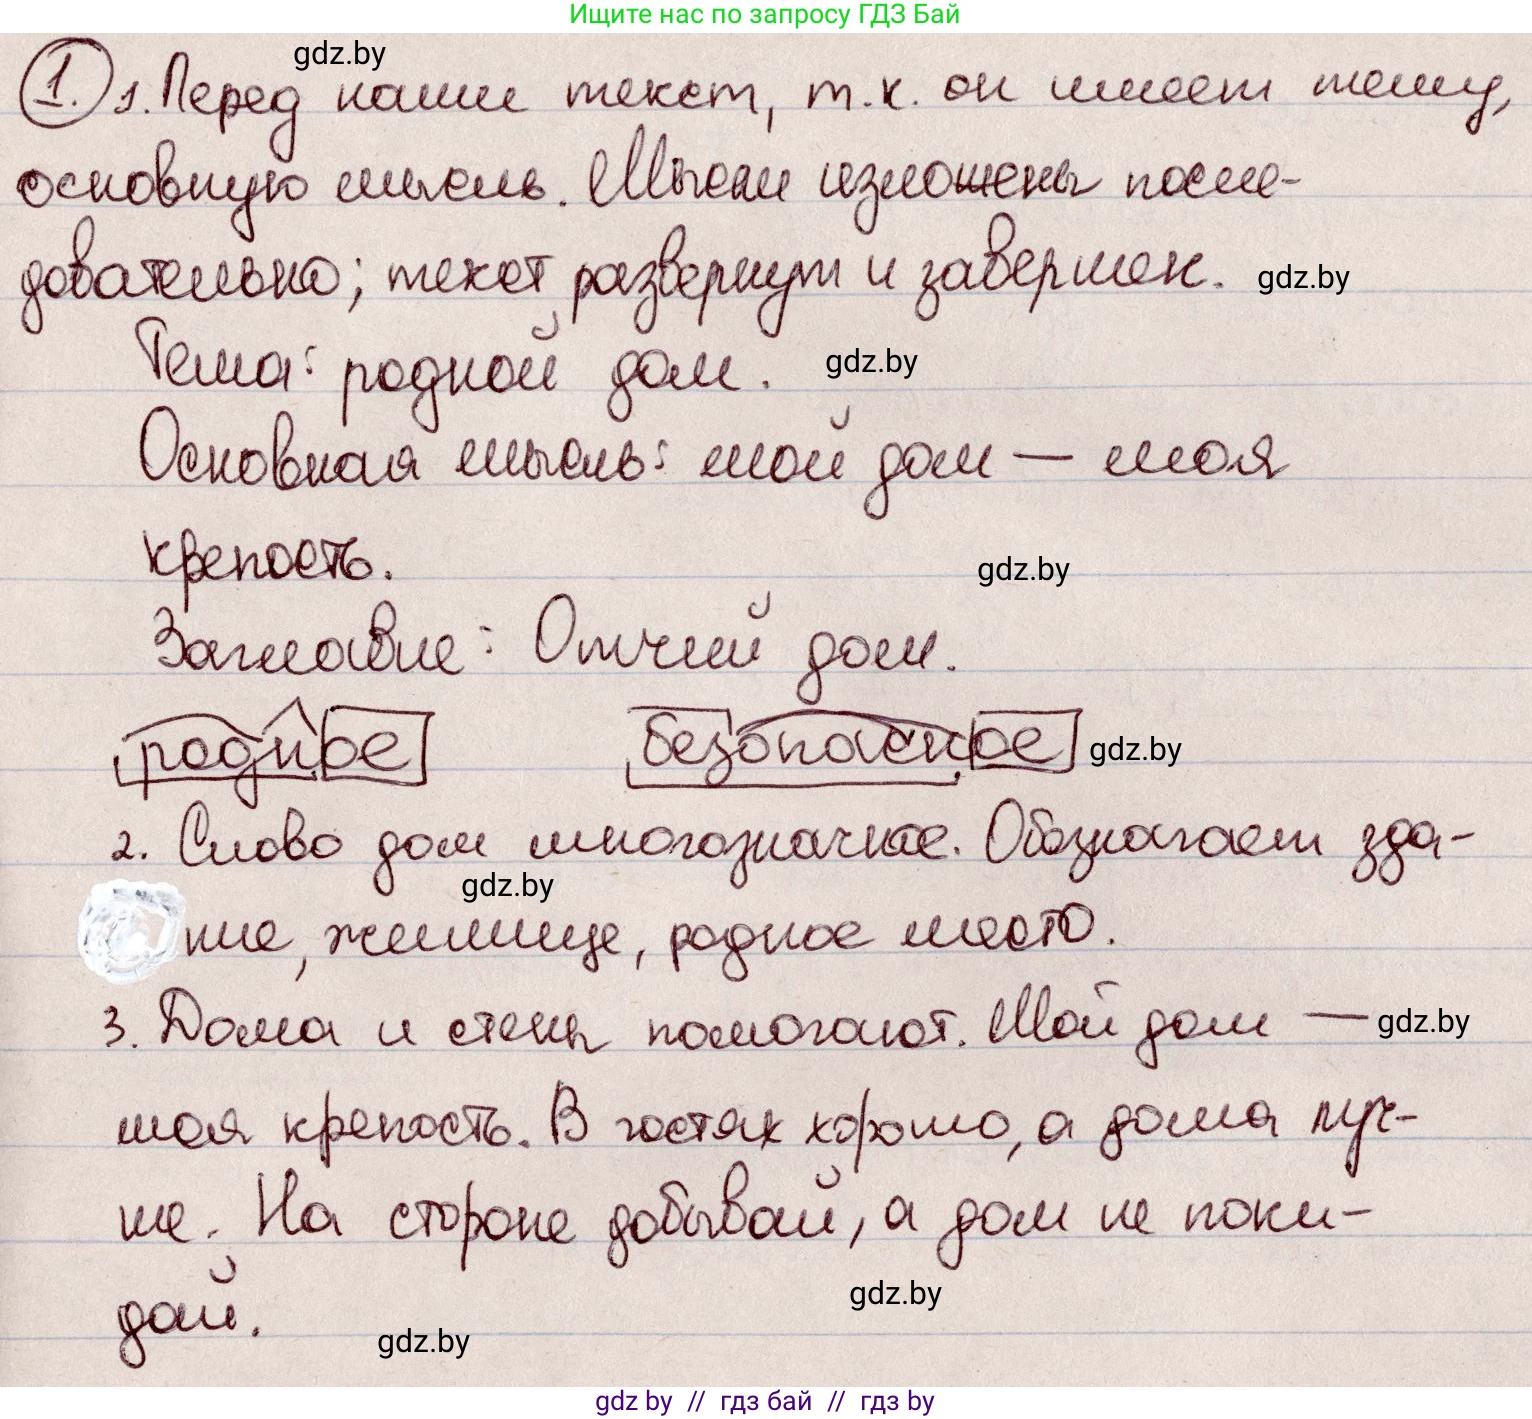 Ищите нас по запросу ГДЗ Бай
gdz.by
1. 1. Перед нами текст, т.к. он имеет тему,
основную мысль. Мысли изложены после-
довательно; текст развернут и завершен. gdz.by
Тема: родной дом. gdz.by
Основная мысль: мой дом — моя
крепость. gdz.by
Заглавие: Отчий дом.
родное безопасное gdz.by
2. Слово дом многозначное. Обозначает зда-
gdz.by
ние, жилище, родное место.
3. Дома и стены помогают. Мой дом — gdz.by
моя крепость. В гостях хорошо, а дома луч-
ше. На стороне добывай, а дом не поки-
gdz.by
дай. gdz.by
gdz by // гдз бай // гдз by